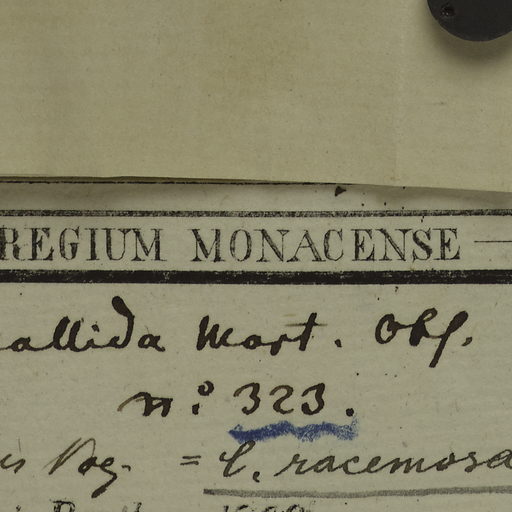 REGIUM MONACENSE
allida Mart. Obs.
n.º 323.
= C. racemosa